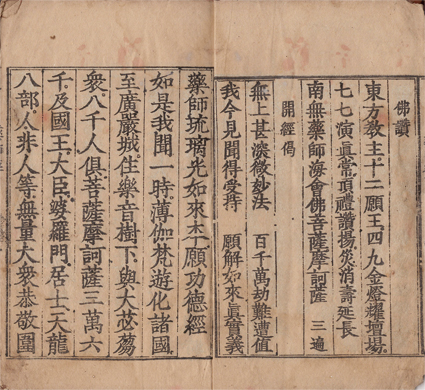 佛讚
東方教主十二願王四九金燈耀壇場
七七演眞常頂禮讚揚災消壽延長
南無藥師海會佛菩薩摩訶薩 三遍
開經偈
無上甚深微妙法 百千萬劫難遭值
我今見聞得受持 願解如來眞實義
藥師琉璃光如來本願功德經
如是我聞一時薄伽梵遊化諸國
至廣嚴城住樂音樹下與大苾蒭
衆八千人俱菩薩摩訶薩三萬六
千及國王大臣婆羅門居士天龍
八部人非人等無量大衆恭敬圍